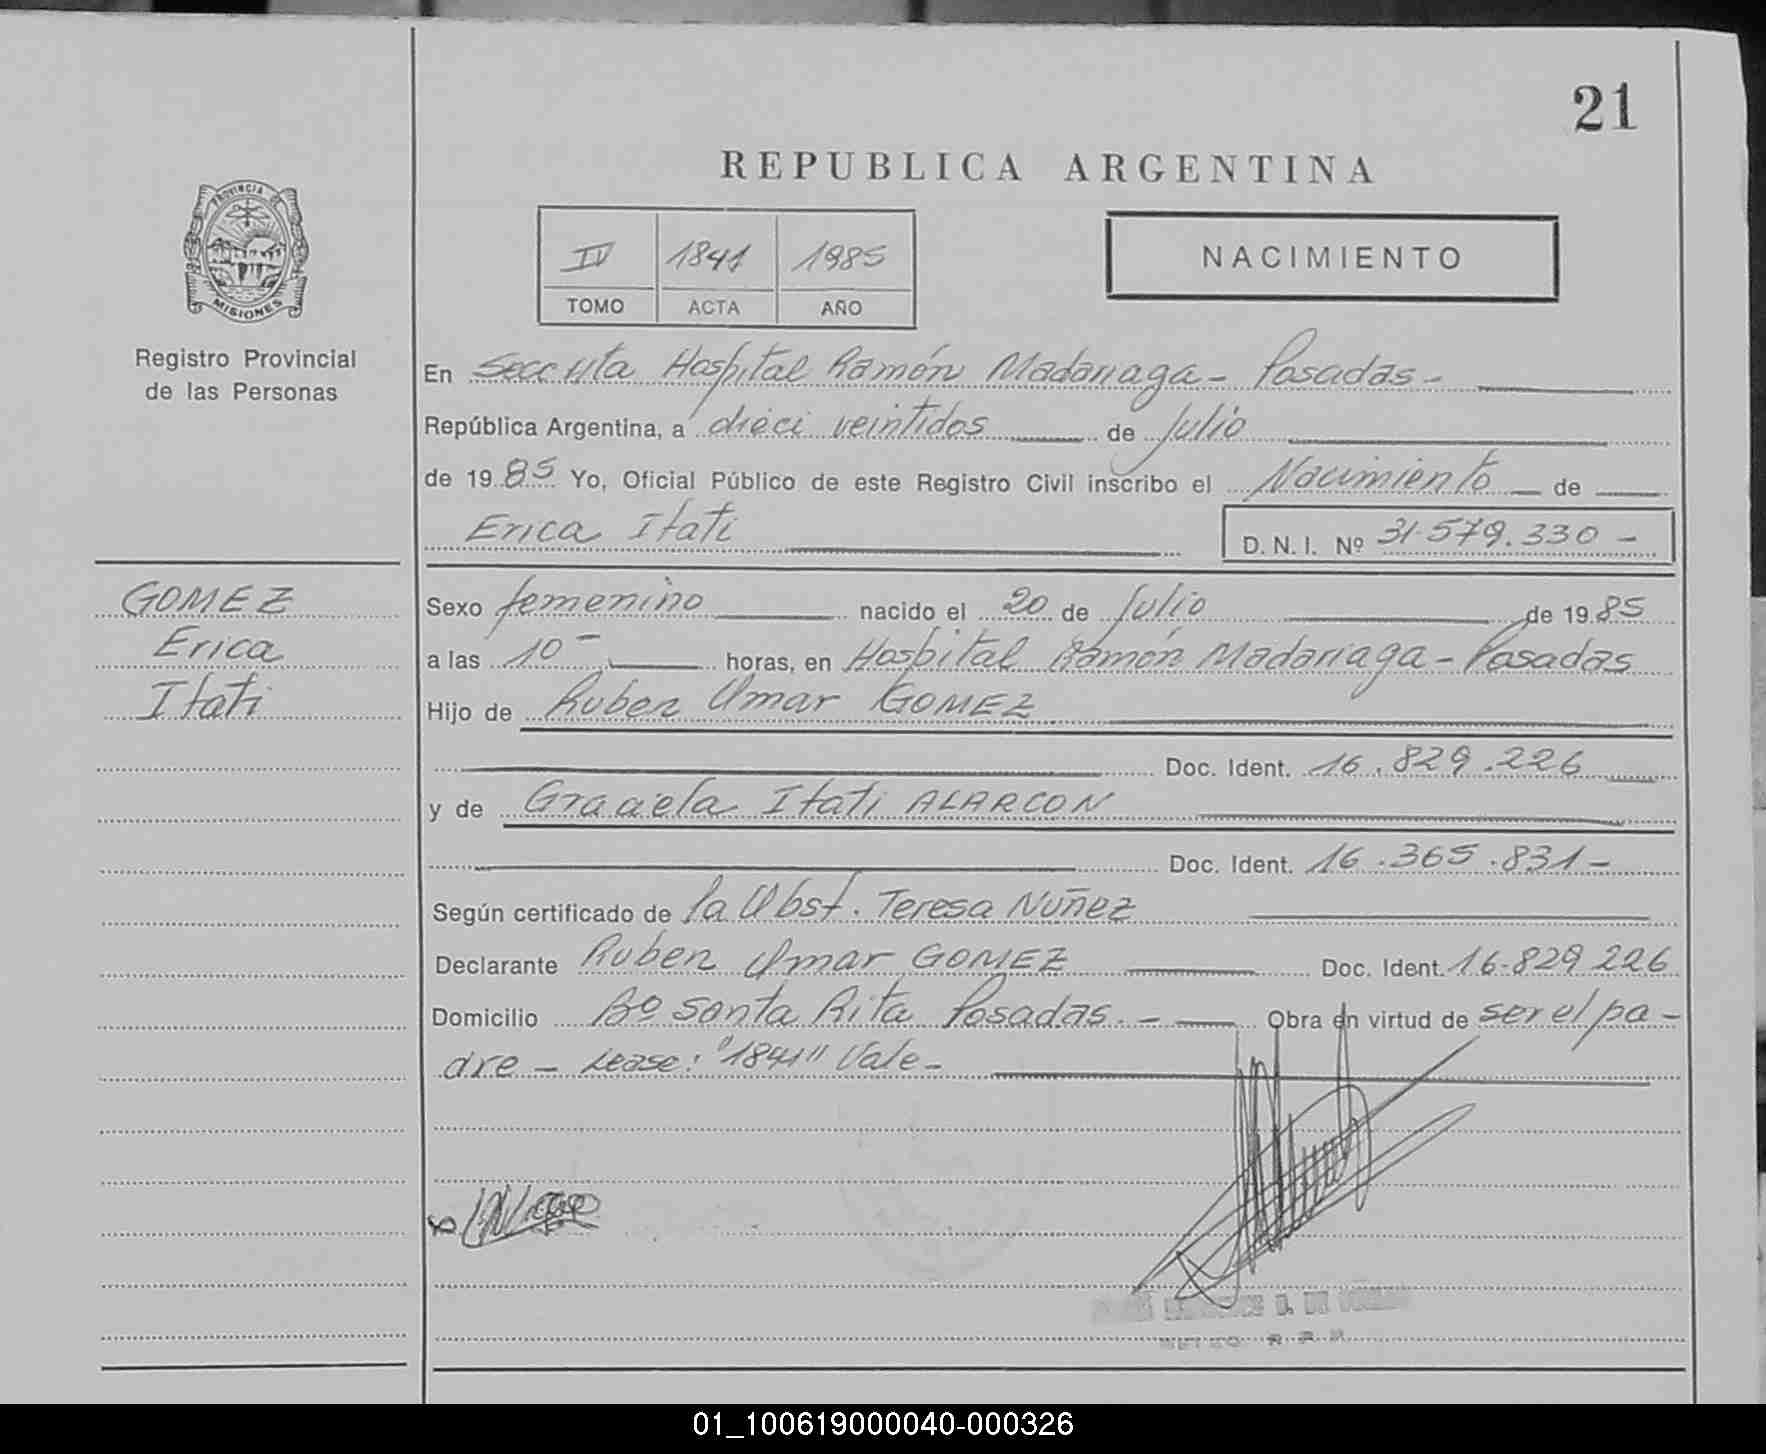 21
REPUBLICA ARGENTINA
PROVINCIA DE
MISIONES
Registro Provincial
de las Personas
IV 1841 1985
TOMO ACTA AÑO
NACIMIENTO
En Secc Hospital Ramón Madariaga - Posadas -
República Argentina, a dieci veintidos de Julio
de 1985 Yo, Oficial Público de este Registro Civil inscribo el Nacimiento de
Erica Itati
D. N. I. Nº 31.579.330 -
GOMEZ
Erica
Itati
Sexo femenino nacido el 20 de Julio de 1985
a las 10 - horas, en Hospital Ramón Madariaga - Posadas
Hijo de Ruben Omar GOMEZ
Doc. Ident. 16.829.226
y de Graciela Itati ALARCON
Doc. Ident. 16.365.831 -
Según certificado de la Obst. Teresa Nuñez
Declarante Ruben Omar GOMEZ Doc. Ident. 16.829 226
Domicilio Bº Santa Rita Posadas. - Obra en virtud de ser el pa -
dre - Lease: "1841" Vale -
01_100619000040-000326